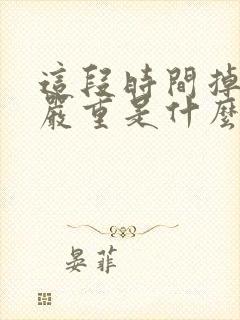 這段時間掉
嚴重是什麼
晏菲